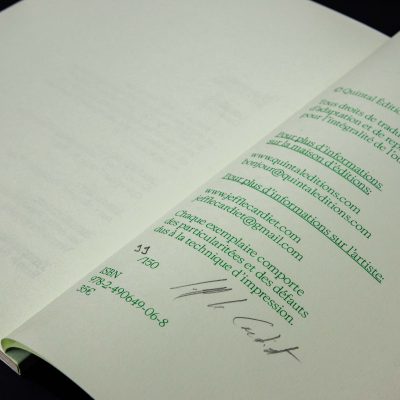 © Quintal Éditio
Tous droits de tradu
d'adaptation et de rep
pour l'intégralité de l'ou
Pour plus d'informations
sur la maison d'éditions:
www.quintaleditions.com
bonjour@quintaleditions.com
Pour plus d'informations sur l'artiste:
www.jefflecardiet.com
jefflecardiet@gmail.com
Chaque exemplaire comporte
des particularitées et des défauts
dus à la technique d'impression.
/150
ISBN
978-2-490649-06-8
35€